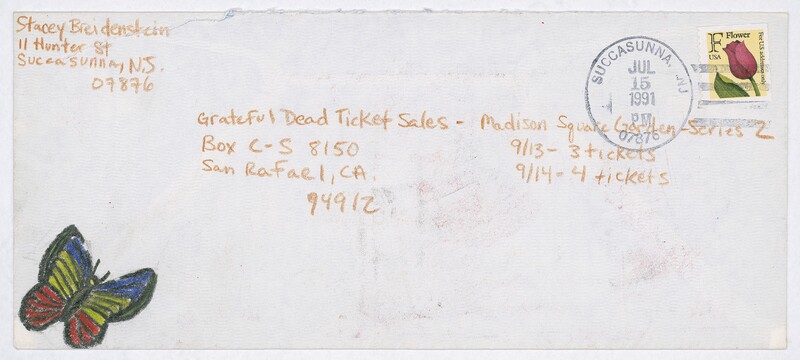 Stacey Breidenstein
11 Hunter St
Succasunna, N.J.
07876
SUCCASUNNA, NJ
JUL
15
1991
PM
07876
F Flower
USA
For U.S. addresses only
Grateful Dead Ticket Sales - Madison Square Garden - Series 2
Box C-S 8150 9/13 - 3 tickets
San Rafael, CA. 9/14 - 4 tickets
94912